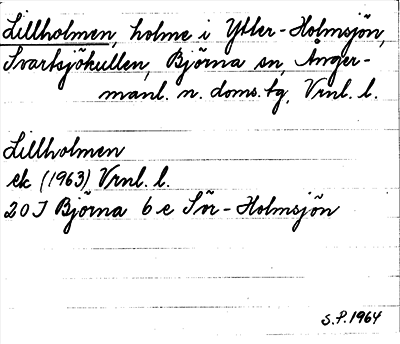 Lillholmen, holme i Ytter-Holmsjön,
Svartsjökullen, Björna sn, Ånger-
manl. n. doms. tg, Vrnl. l.
Lillholmen
ek (1963) Vrnl. l.
20 J Björna 6 e Sör-Holmsjön
S.P. 1964